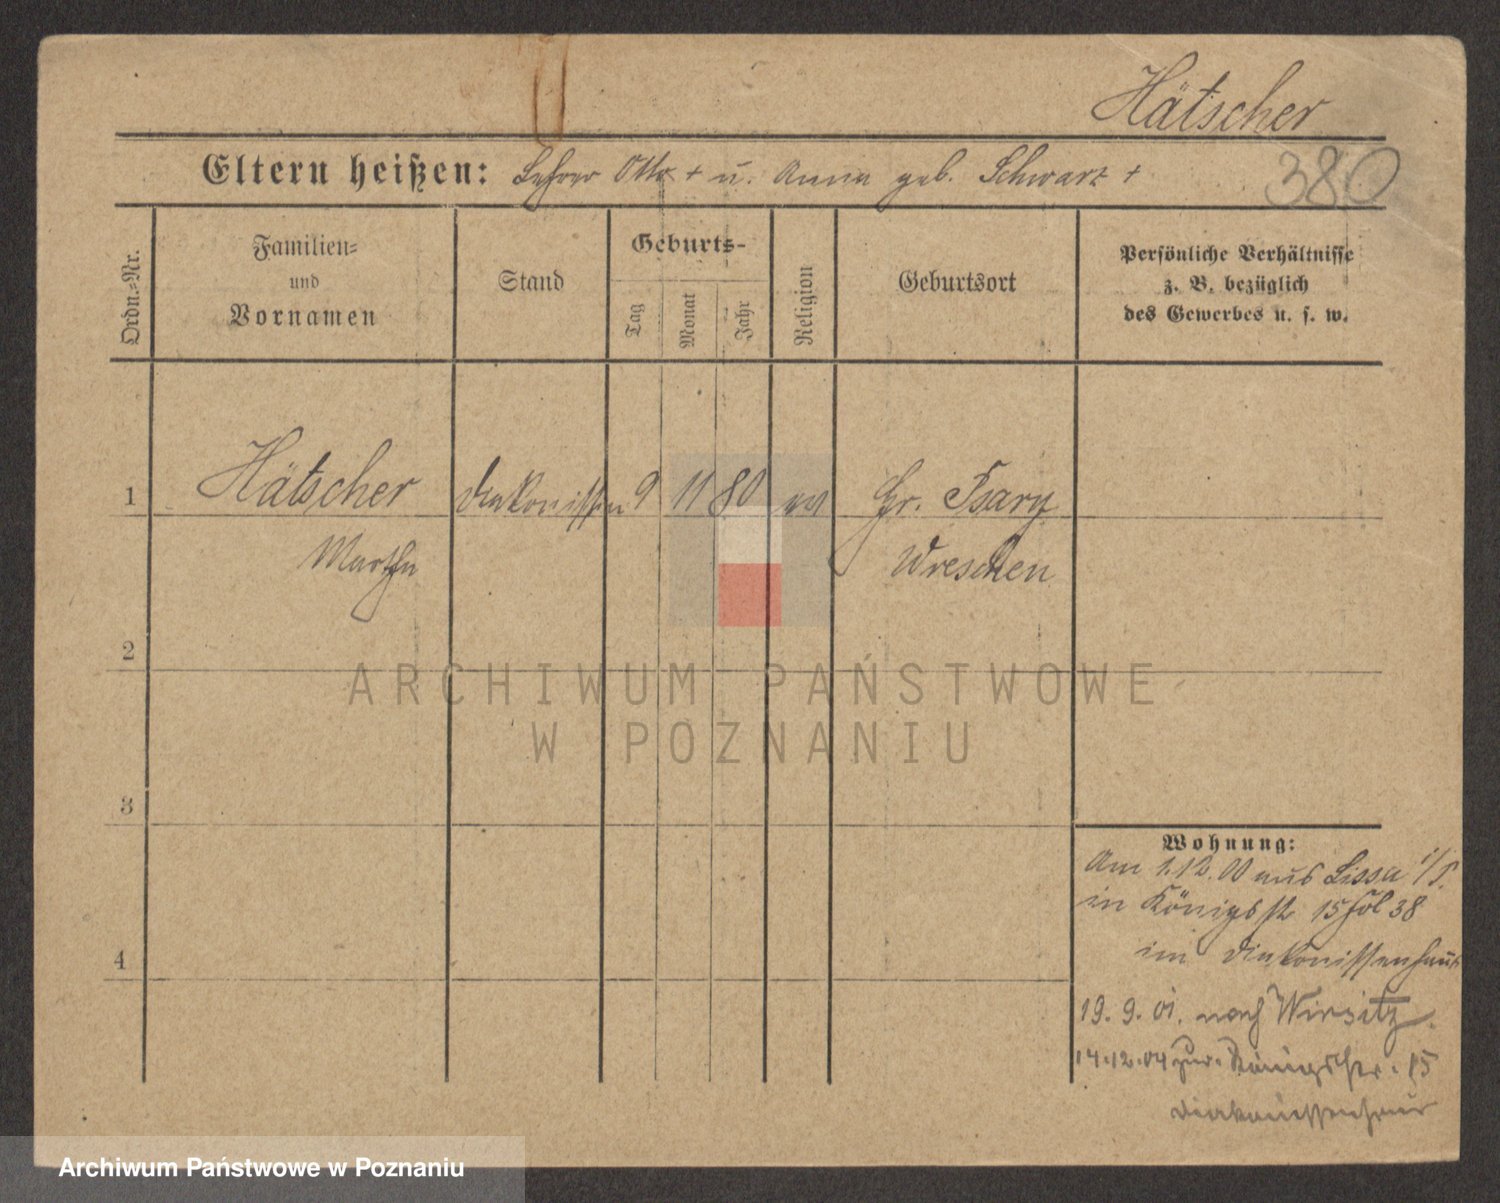 Hätscher
380
Eltern heißen: Lehrer Otto + u. Anna geb. Schwarz +
Ordn.-Nr.
Familien-
und
Vornamen
Stand
Geburts-
Tag
Monat
Jahr
Religion
Geburtsort
Persönliche Verhältnisse
z. B. bezüglich
des Gewerbes u. s. w.
1
Hätscher
Diakonissin
9
11
80
ev
Gr.
Martha
Wreschen
2
ARCHIWUM PAŃSTWOWE
W POZNANIU
3
4
Wohnung:
Am 1.12.00 aus Lissa i/P.
in Königsstr 15 38
im Diakonissenhaus
19. 9. 01. nach Wirsitz.
14.12.04 zur. Königstr. 15
Diakonissenhaus
Archiwum Państwowe w Poznaniu